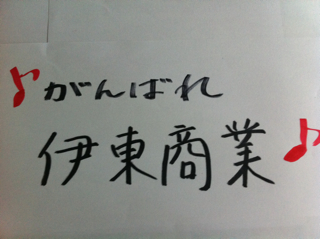 ♪がんばれ
伊東商業♪